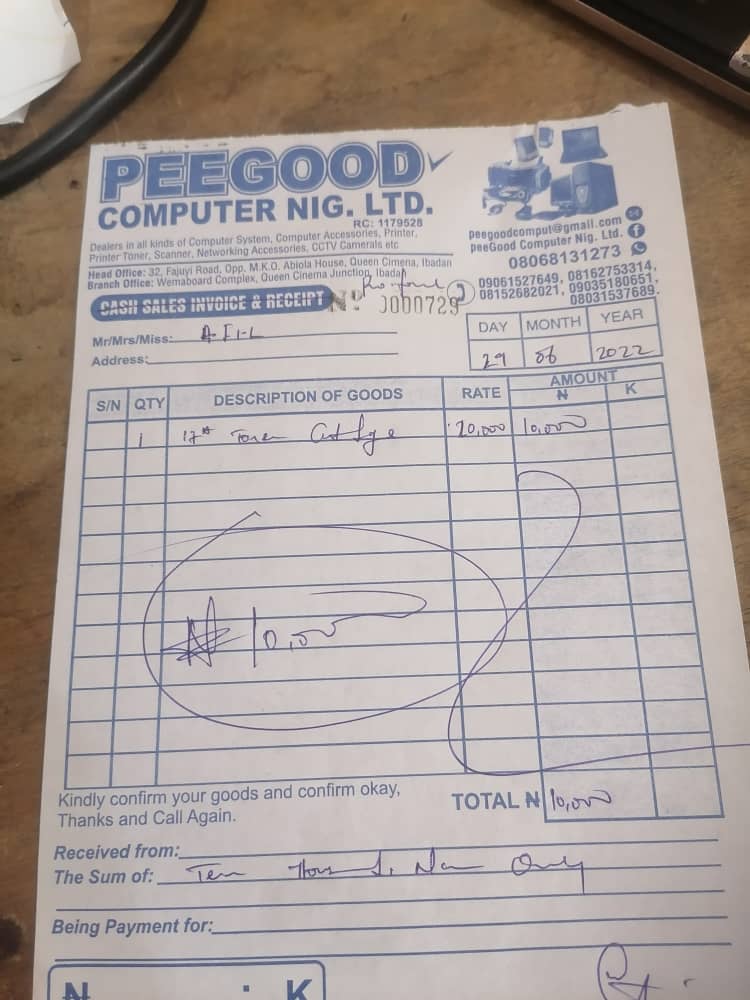 PEEGOOD
COMPUTER NIG. LTD.
RC: 1179528
Dealers in all kinds of Computer System, Computer Accessories, Printer,
Printer Toner, Scanner, Networking Accessories, CCTV Camerals etc
Head Office: 32, Fajuyi Road, Opp. M.K.O. Abiola House, Queen Cimena, Ibadan
Branch Office: Wemaboard Complex, Queen Cinema Junction, Ibadan
peegoodcomput@gmail.com
peeGood Computer Nig. Ltd.
08068131273
09061527649, 08162753314,
08152682021, 09035180651,
08031537689.
CASH SALES INVOICE & RECEIPT
Nº 0000729
Mr/Mrs/Miss:
Address:
DAY MONTH YEAR
29 06 2022
S/N QTY DESCRIPTION OF GOODS RATE AMOUNT
₦ K
1 17A Toner 20,000 10,000
₦10,000
Kindly confirm your goods and confirm okay,
Thanks and Call Again.
TOTAL ₦ 10,000
Received from:
The Sum of: Ten Only
Being Payment for:
₦ : K